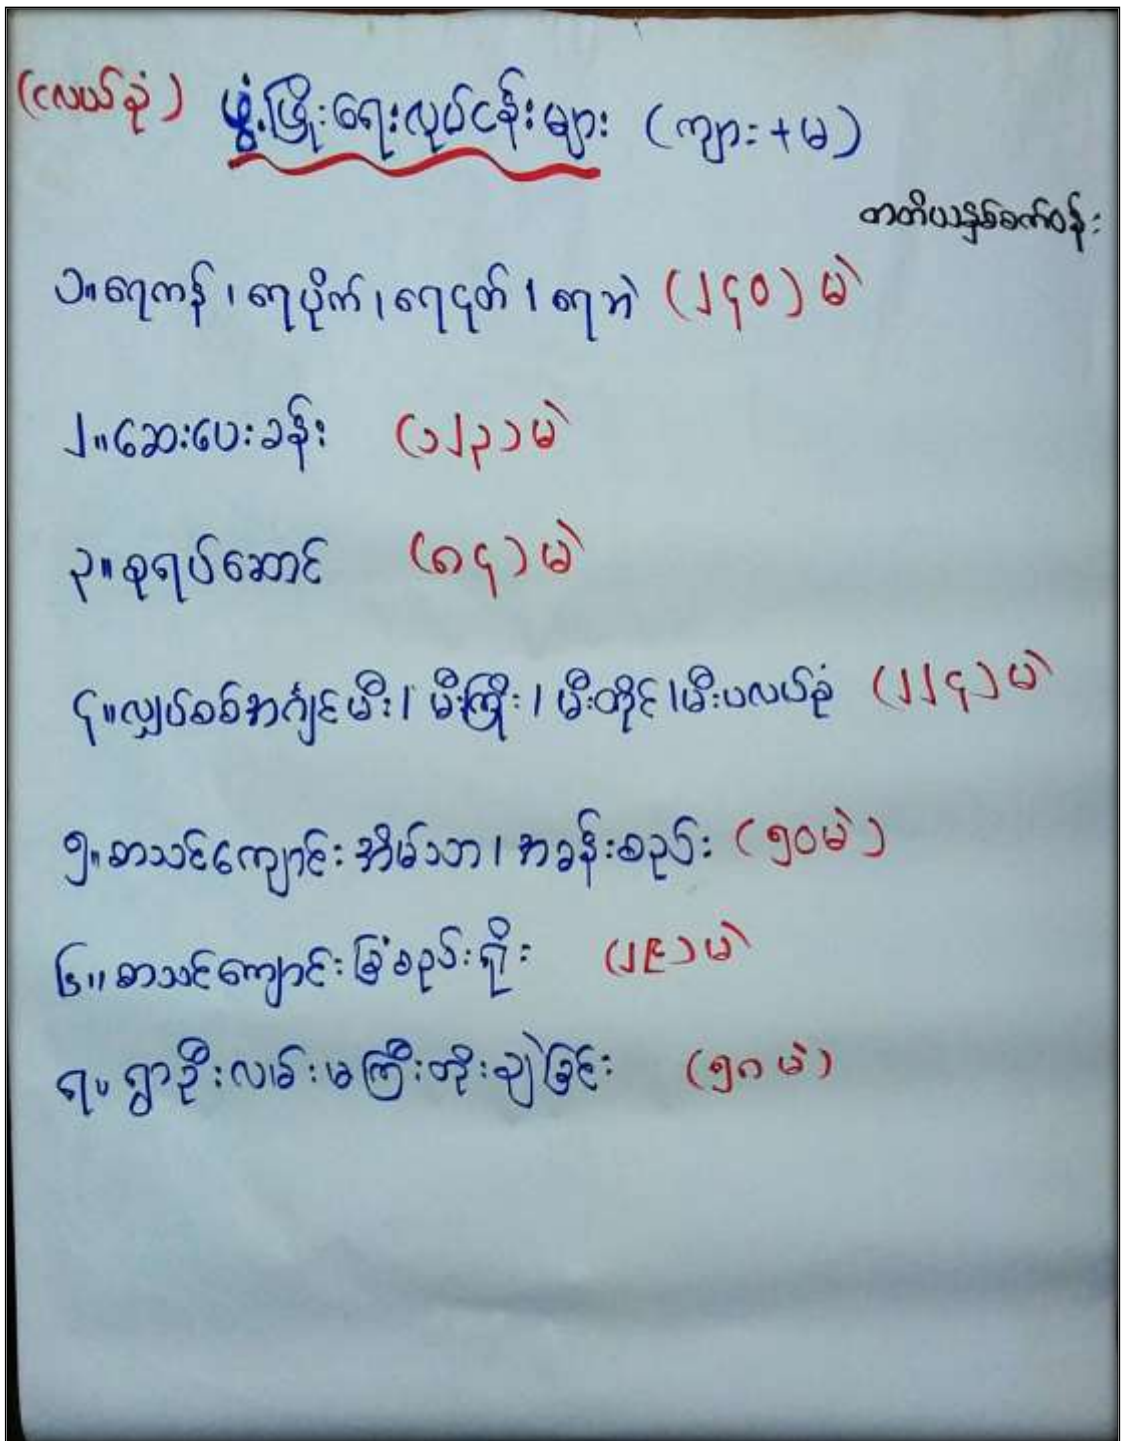 (လယ်ခုံ) ဖွံ့ဖြိုးရေးလုပ်ငန်းများ (ကျား+မ)
တတိယနှစ်စက်ဝန်း
၁။ရေကန်၊ရေပိုက်၊ရေငုတ်၊ရေဘဲ (၂၄၀) မဲ
၂။ဆေးပေးခန်း (၁၂၃) မဲ
၃။စုရပ်ဆောင် (၈၄) မဲ
၄။လျှပ်စစ်အင်္ဂျင်မီး၊မီးကြိုး၊မီးတိုင်၊မီးပလပ်ခုံ (၂၂၄) မဲ
၅။စာသင်ကျောင်းအိမ်သာ၊အခန်းစည်း (၅၀မဲ)
၆။စာသင်ကျောင်းခြံစည်းရိုး (၂၉) မဲ
၇။ရွာဦးလမ်းမကြီးတိုးချဲ့ခြင်း (၅၈မဲ)